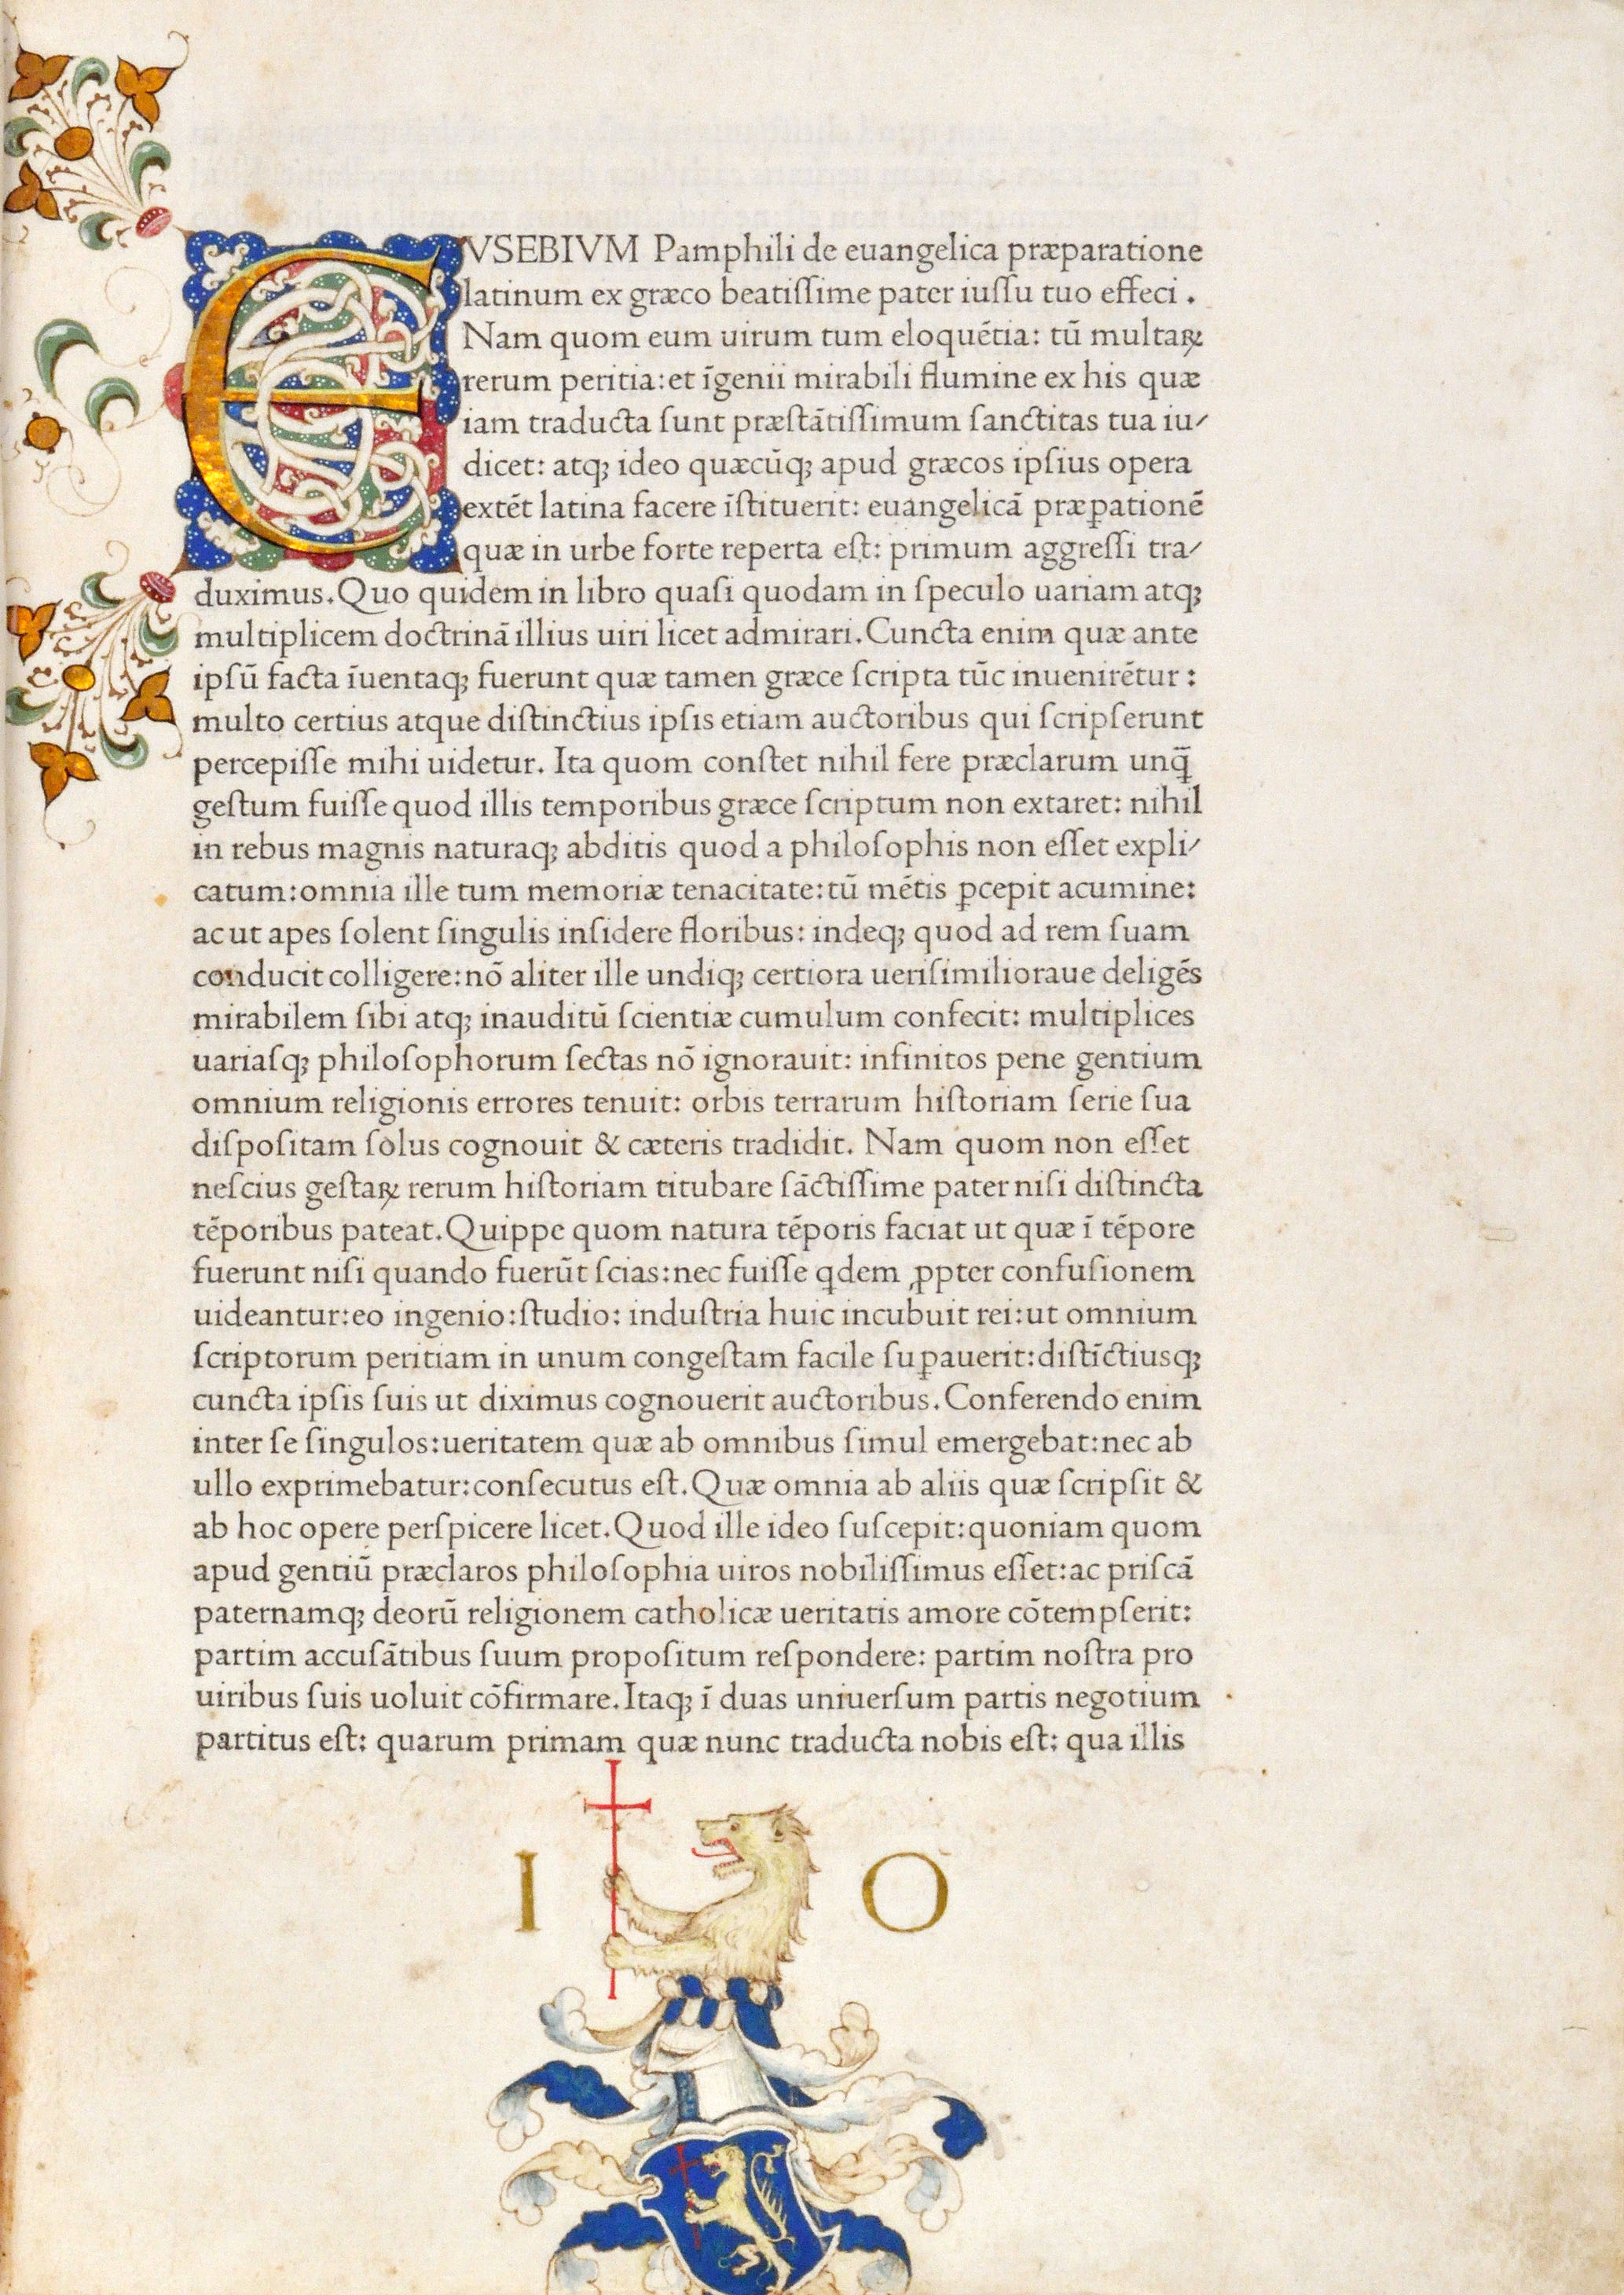 EVSEBIVM Pamphili de euangelica præparatione
latinum ex græco beatiſſime pater iuſſu tuo effeci .
Nam quom eum uirum tum eloquētia: tū multaꝝ
rerum peritia:et īgenii mirabili flumine ex his quæ
iam traducta ſunt præſtātiſſimum ſanctitas tua iu⸗
dicet: atqꝫ ideo quæcūqꝫ apud græcos ipſius opera
extēt latina facere īſtituerit: euangelicā præꝑationē
quæ in urbe forte reperta eſt: primum aggreſſi tra⸗
duximus.Quo quidem in libro quaſi quodam in ſpeculo uariam atqꝫ
multiplicem doctrinā illius uiri licet admirari.Cuncta enim quæ ante
ipſū facta īuentaqꝫ fuerunt quæ tamen græce ſcripta tūc inuenirētur :
multo certius atque diſtinctius ipſis etiam auctoribus qui ſcripſerunt
percepiſſe mihi uidetur. Ita quom conſtet nihil fere præclarum unq̄
geſtum fuiſſe quod illis temporibus græce ſcriptum non extaret: nihil
in rebus magnis naturaqꝫ abditis quod a philoſophis non eſſet expli⸗
catum:omnia ille tum memoriæ tenacitate:tū mētis ꝑcepit acumine:
ac ut apes ſolent ſingulis inſidere floribus: indeqꝫ quod ad rem ſuam
conducit colligere:nō aliter ille undiqꝫ certiora ueriſimilioraue deligēs
mirabilem ſibi atqꝫ inauditū ſcientiæ cumulum confecit: multiplices
uariaſqꝫ philoſophorum ſectas nō ignorauit: infinitos pene gentium
omnium religionis errores tenuit: orbis terrarum hiſtoriam ſerie ſua
diſpoſitam ſolus cognouit & cæteris tradidit. Nam quom non eſſet
neſcius geſtaꝝ rerum hiſtoriam titubare ſāctiſſime pater niſi diſtincta
tēporibus pateat.Quippe quom natura tēporis faciat ut quæ ī tēpore
fuerunt niſi quando fuerūt ſcias:nec fuiſſe ꝗdem ꝓpter confuſionem
uideantur:eo ingenio:ſtudio: induſtria huic incubuit rei:ut omnium
ſcriptorum peritiam in unum congeſtam facile ſuꝑauerit:diſtīctiusqꝫ
cuncta ipſis ſuis ut diximus cognouerit auctoribus.Conferendo enim
inter ſe ſingulos:ueritatem quæ ab omnibus ſimul emergebat:nec ab
ullo exprimebatur:conſecutus eſt.Quæ omnia ab aliis quæ ſcripſit &
ab hoc opere perſpicere licet.Quod ille ideo ſuſcepit:quoniam quom
apud gentiū præclaros philoſophia uiros nobiliſſimus eſſet:ac priſcā
paternamqꝫ deorū religionem catholicæ ueritatis amore cōtempſerit:
partim accuſātibus ſuum propoſitum reſpondere: partim noſtra pro
uiribus ſuis uoluit cōfirmare.Itaqꝫ ī duas uniuerſum partis negotium
partitus eſt: quarum primam quæ nunc traducta nobis eſt: qua illis
I O